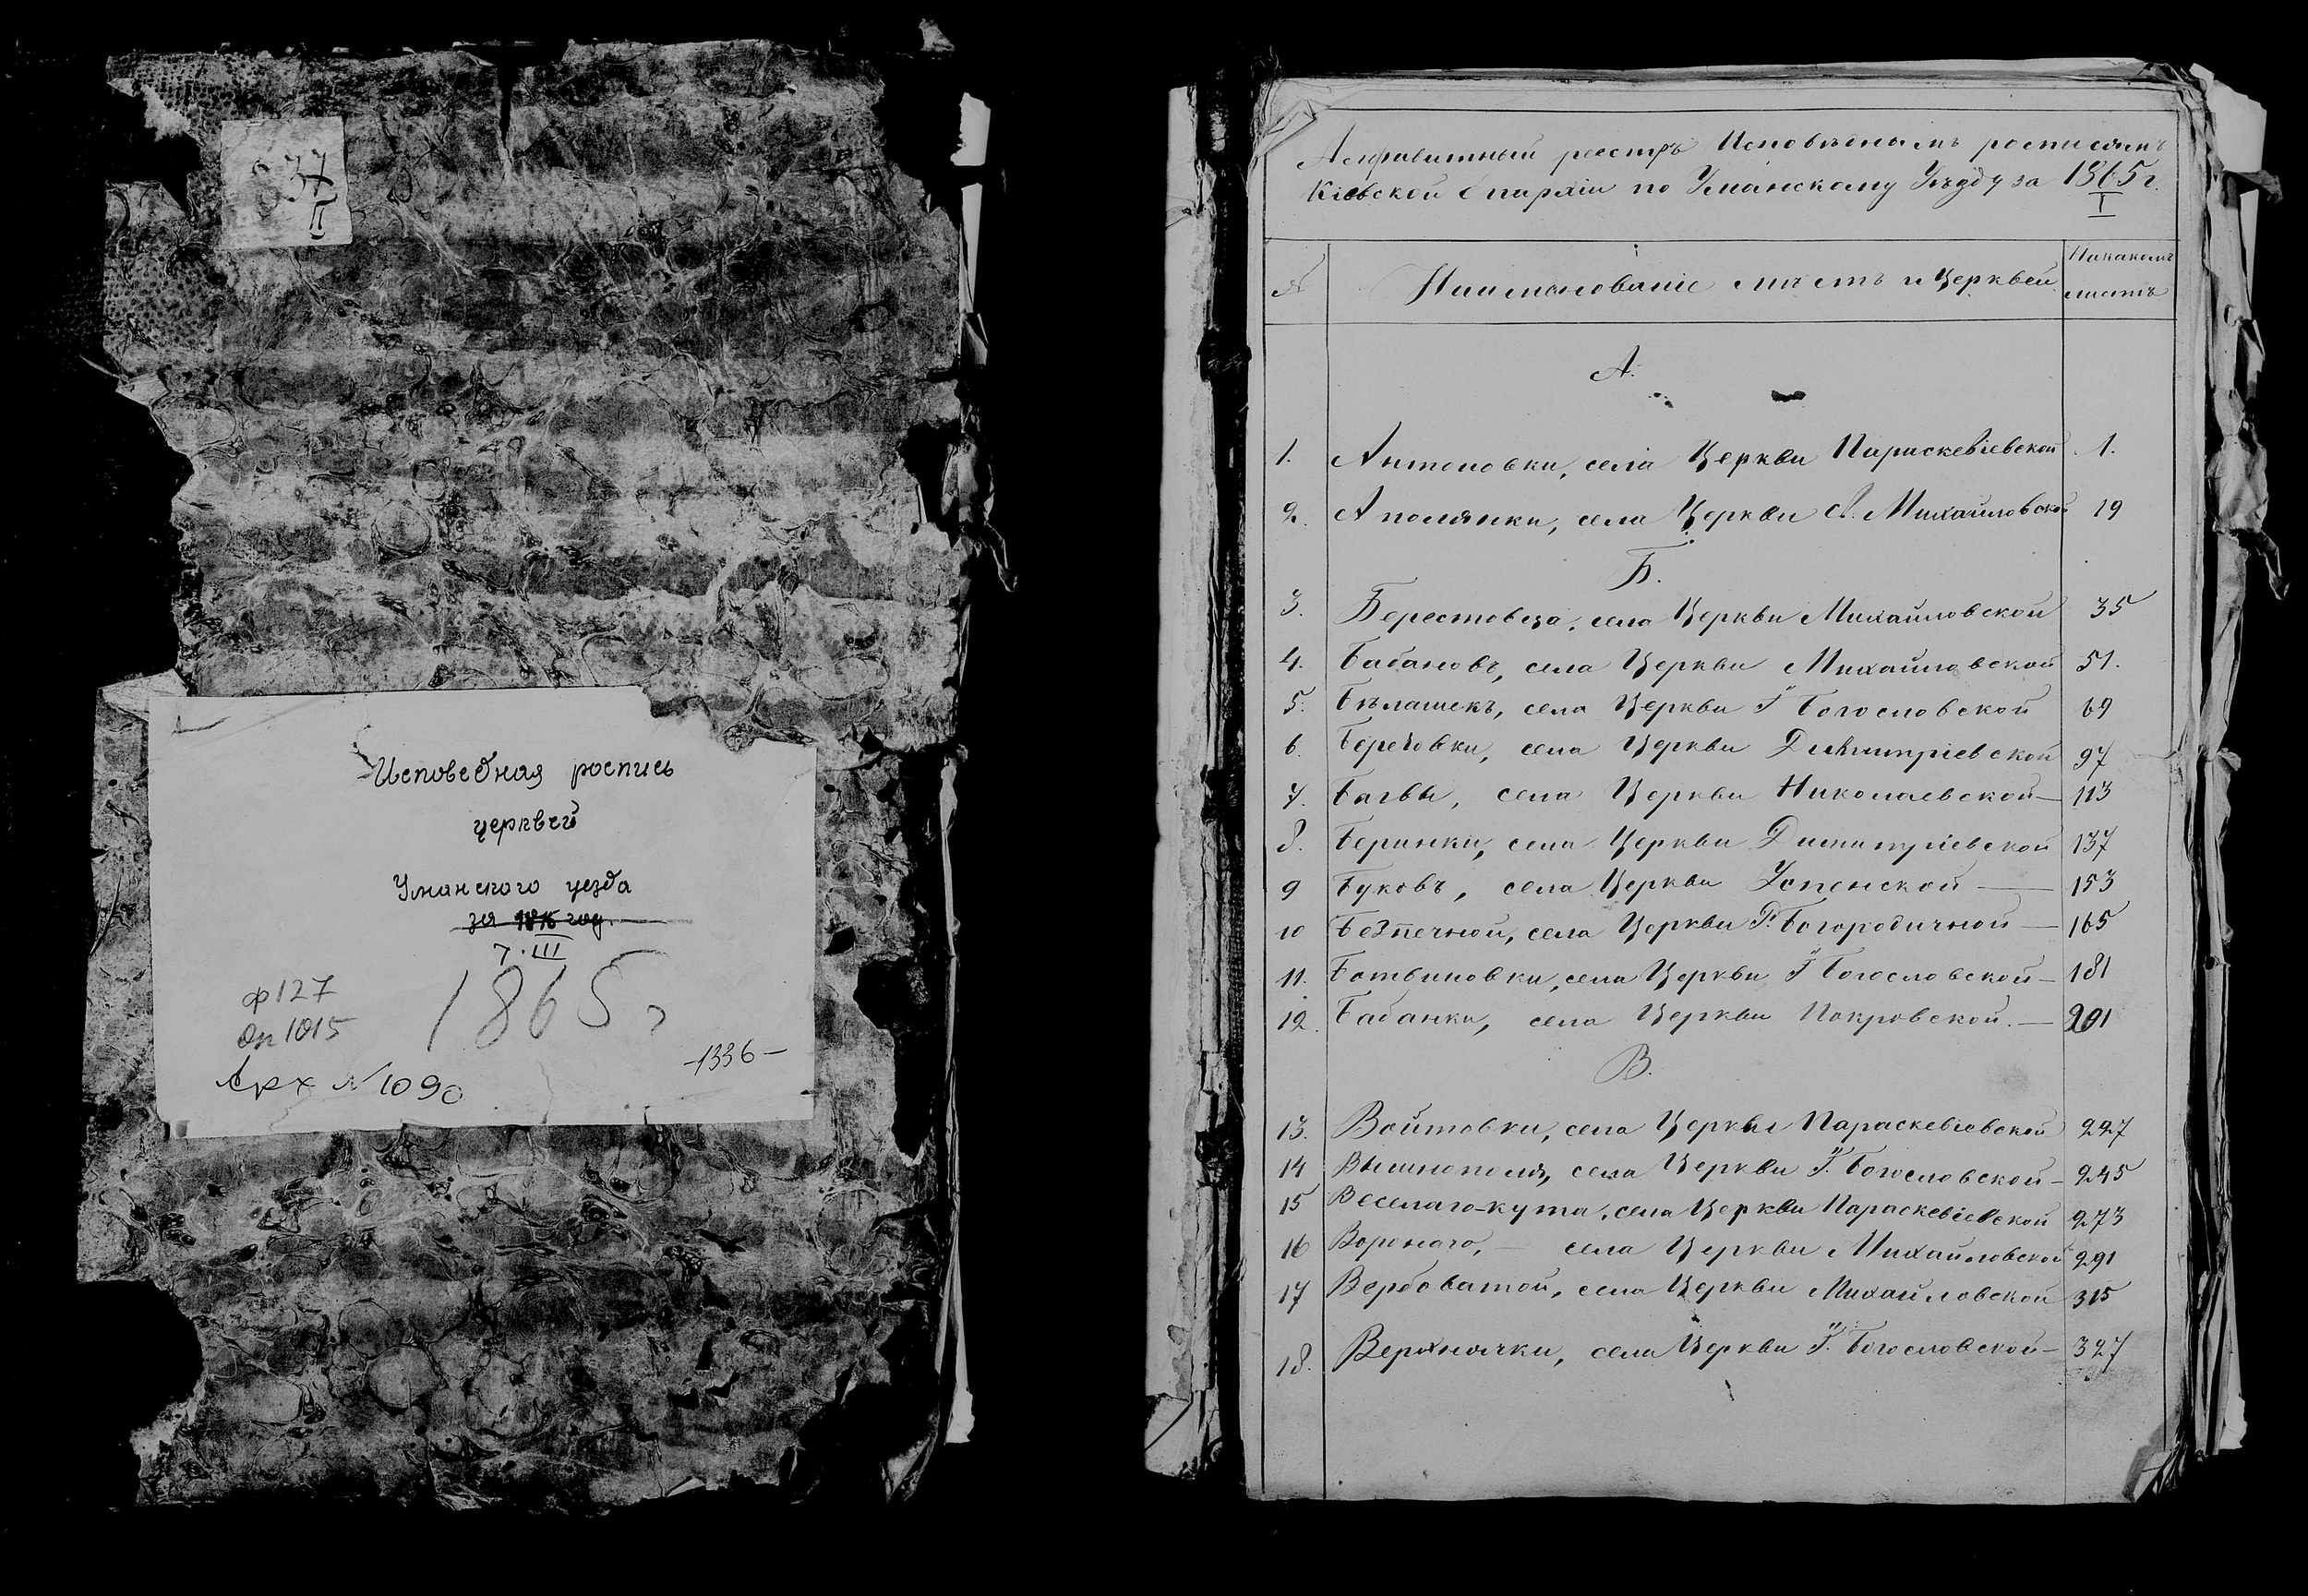 37
II
Исповедная роспись
церквей
Уманского уезда
за год.
7. III
1865 г
ф 127
оп 1015
Арх № 1090
-1336-
Алфавитный реестръ Исповѣднымъ росписямъ
Кіевской Епархіи по Уманскому Уѣзду за 1865 г.
I
№
Наименованіе мѣстъ и Церквей
На какомъ
листѣ
А.
1. Антоновки, села Церкви Параскевіевской 1.
2. Аполянки, села Церкви А. Михайловской 19
Б.
3. Берестовца, села Церкви Михайловской 35
4. Бабановъ, села Церкви Михайловской 51.
5. Бѣлашекъ, села Церкви І. Богословской 69
6. Береговки, села Церкви Димитріевской 97
7. Багвы, села Церкви Николаевской — 113
8. Беринки, села Церкви Димитріевской 137
9 Буковъ, села Церкви Успенской — 153
10 Безпечной, села Церкви Р. Богородичной — 165
11. Ботвиновки, села Церкви І. Богословской — 181
12. Бабанки, села Церкви Покровской. — 201
В.
13. Войтовки, села Церкви Параскевіевской 227
14 Вишнополя, села Церкви І. Богословской — 245
15 Веселаго-кута, села Церкви Параскевіевской 273
16 Вороного, — села Церкви Михайловской 291
17 Вербоватой, села Церкви Михайловской 315
18. Верхнячки, села Церкви І. Богословской — 327